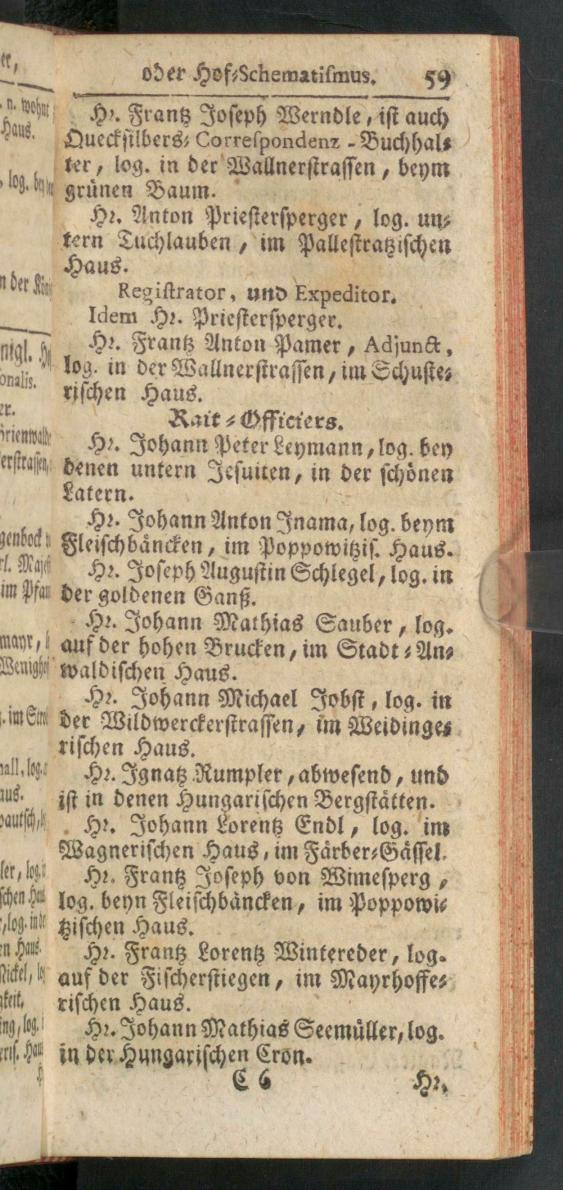 oder Hof-Schematismus. 59
Hr. Frantz Joseph Werndle, ist auch
Quecksilbers-Correspondenz-Buchhal-
ter, log. in der Wallnerstrassen, beym
grünen Baum.
Hr. Anton Priestersperger, log. un-
tern Tuchlauben, im Pallestratzischen
Haus.
Registrator, und Expeditor.
Idem Hr. Priestersperger.
Hr. Frantz Anton Pamer, Adjunct,
log. in der Wallnerstrassen, im Schuste-
rischen Haus.
Rait-Officiers.
Hr. Johann Peter Leymann, log. bey
denen untern Jesuiten, in der schönen
Latern.
Hr. Johann Anton Inama, log. beym
Fleischbäncken, im Poppowitzis. Haus.
Hr. Joseph Augustin Schlegel, log. in
der goldenen Ganß.
Hr. Johann Mathias Sauber, log.
auf der hohen Brucken, im Stadt-An-
waldischen Haus.
Hr. Johann Michael Jobst, log. in
der Wildwerckerstrassen, im Weidinge-
rischen Haus.
Hr. Ignatz Rumpler, abwesend, und
ist in denen Hungarischen Bergstätten.
Hr. Johann Lorentz Endl, log. im
Wagnerischen Haus, im Färber-Gässel.
Hr. Frantz Joseph von Wimesperg,
log. beyn Fleischbäncken, im Poppowi-
tzischen Haus.
Hr. Frantz Lorentz Wintereder, log.
auf der Fischerstiegen, im Mayrhoffe-
rischen Haus.
Hr. Johann Mathias Seemüller, log.
in der Hungarischen Cron.
C 6 Hr.